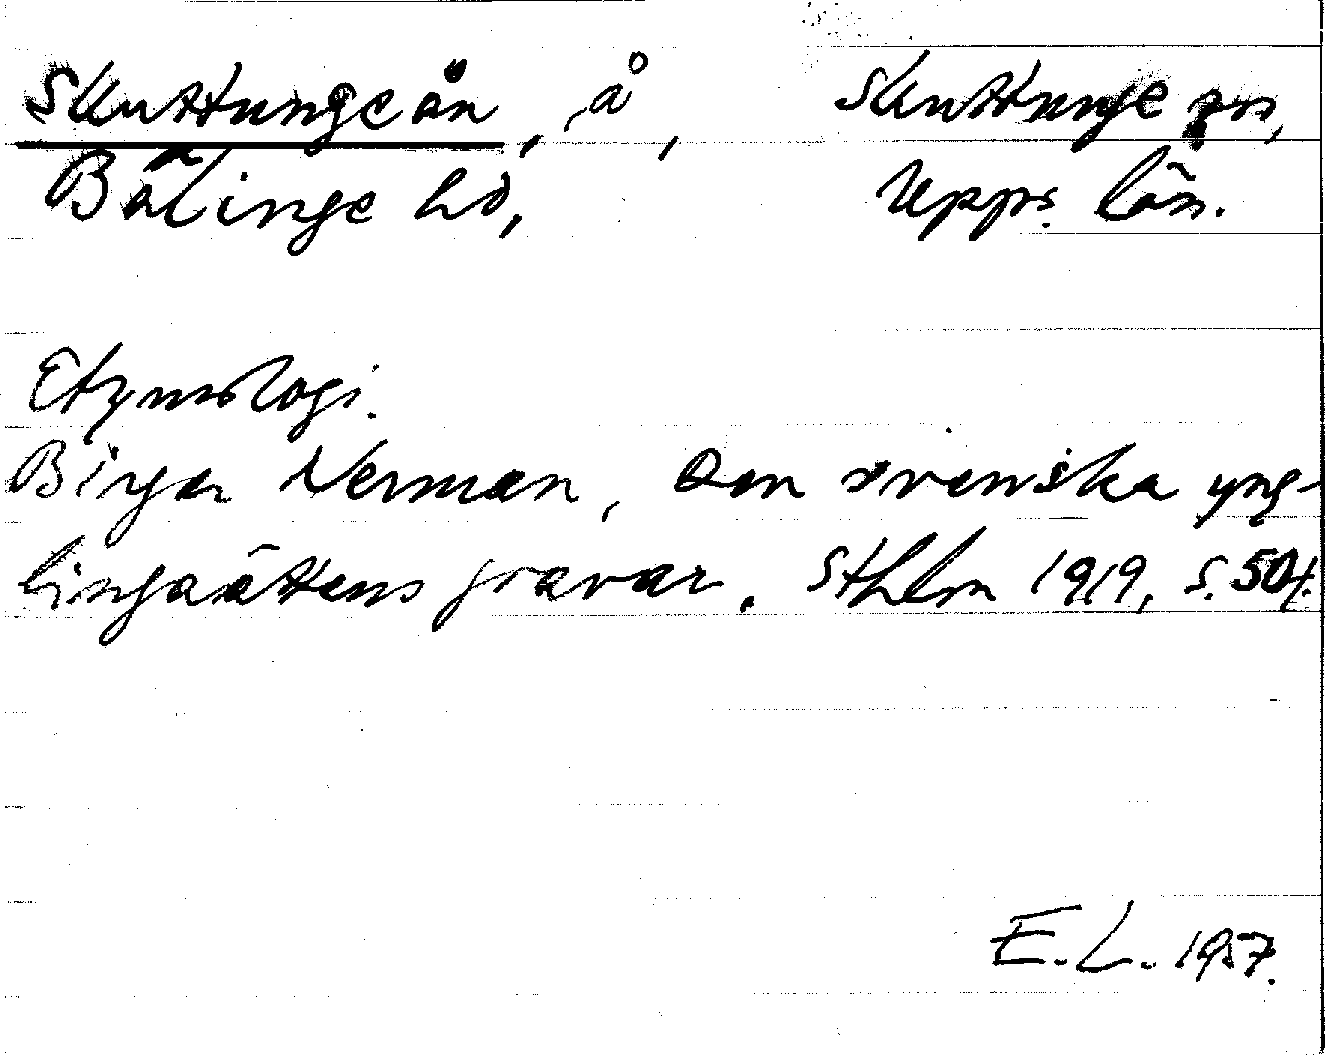 Skuttungeån, å, Skuttunge sn,
Bälinge hd, Upps. län.
Etymologi.
Birger Nerman, Den svenska yng-
lingaättens gravar. Sthlm 1919, s. 50f.
E.L. 1957.